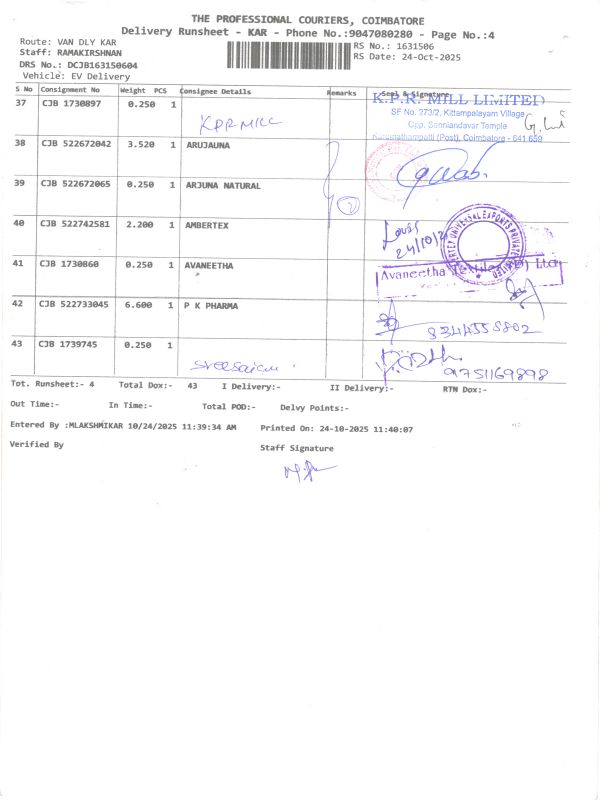 THE PROFESSIONAL COURIERS, COIMBATORE
Delivery Runsheet - KAR - Phone No.:9047080280 - Page No.:4
Route: VAN DLY KAR
RS No.: 1631506
Staff: RAMAKIRSHNAN
RS Date: 24-Oct-2025
DRS No.: DCJB163150604
Vehicle: EV Delivery
S No Consignment No Weight PCS Consignee Details Remarks Seal & Signature
37 CJB 1730897 0.250 1 KPR MILL
K.P.R. MILL LIMITED
SF No. 273/2, Kittampalayam Village
Opp. Senniandavar Temple
Karumathampatti (Post), Coimbatore - 641 659
38 CJB 522672042 3.520 1 ARUJAUNA
39 CJB 522672065 0.250 1 ARJUNA NATURAL
2
40 CJB 522742581 2.200 1 AMBERTEX
24/10/2
41 CJB 1730860 0.250 1 AVANEETHA
Avaneetha Textiles (P) Ltd
42 CJB 522733045 6.600 1 P K PHARMA
9344555802
43 CJB 1739745 0.250 1 Sreesaicim
9751169898
Tot. Runsheet:- 4 Total Dox:- 43 I Delivery:- II Delivery:- RTN Dox:-
Out Time:- In Time:- Total POD:- Delvy Points:-
Entered By :MLAKSHMIKAR 10/24/2025 11:39:34 AM Printed On: 24-10-2025 11:40:07
Verified By Staff Signature